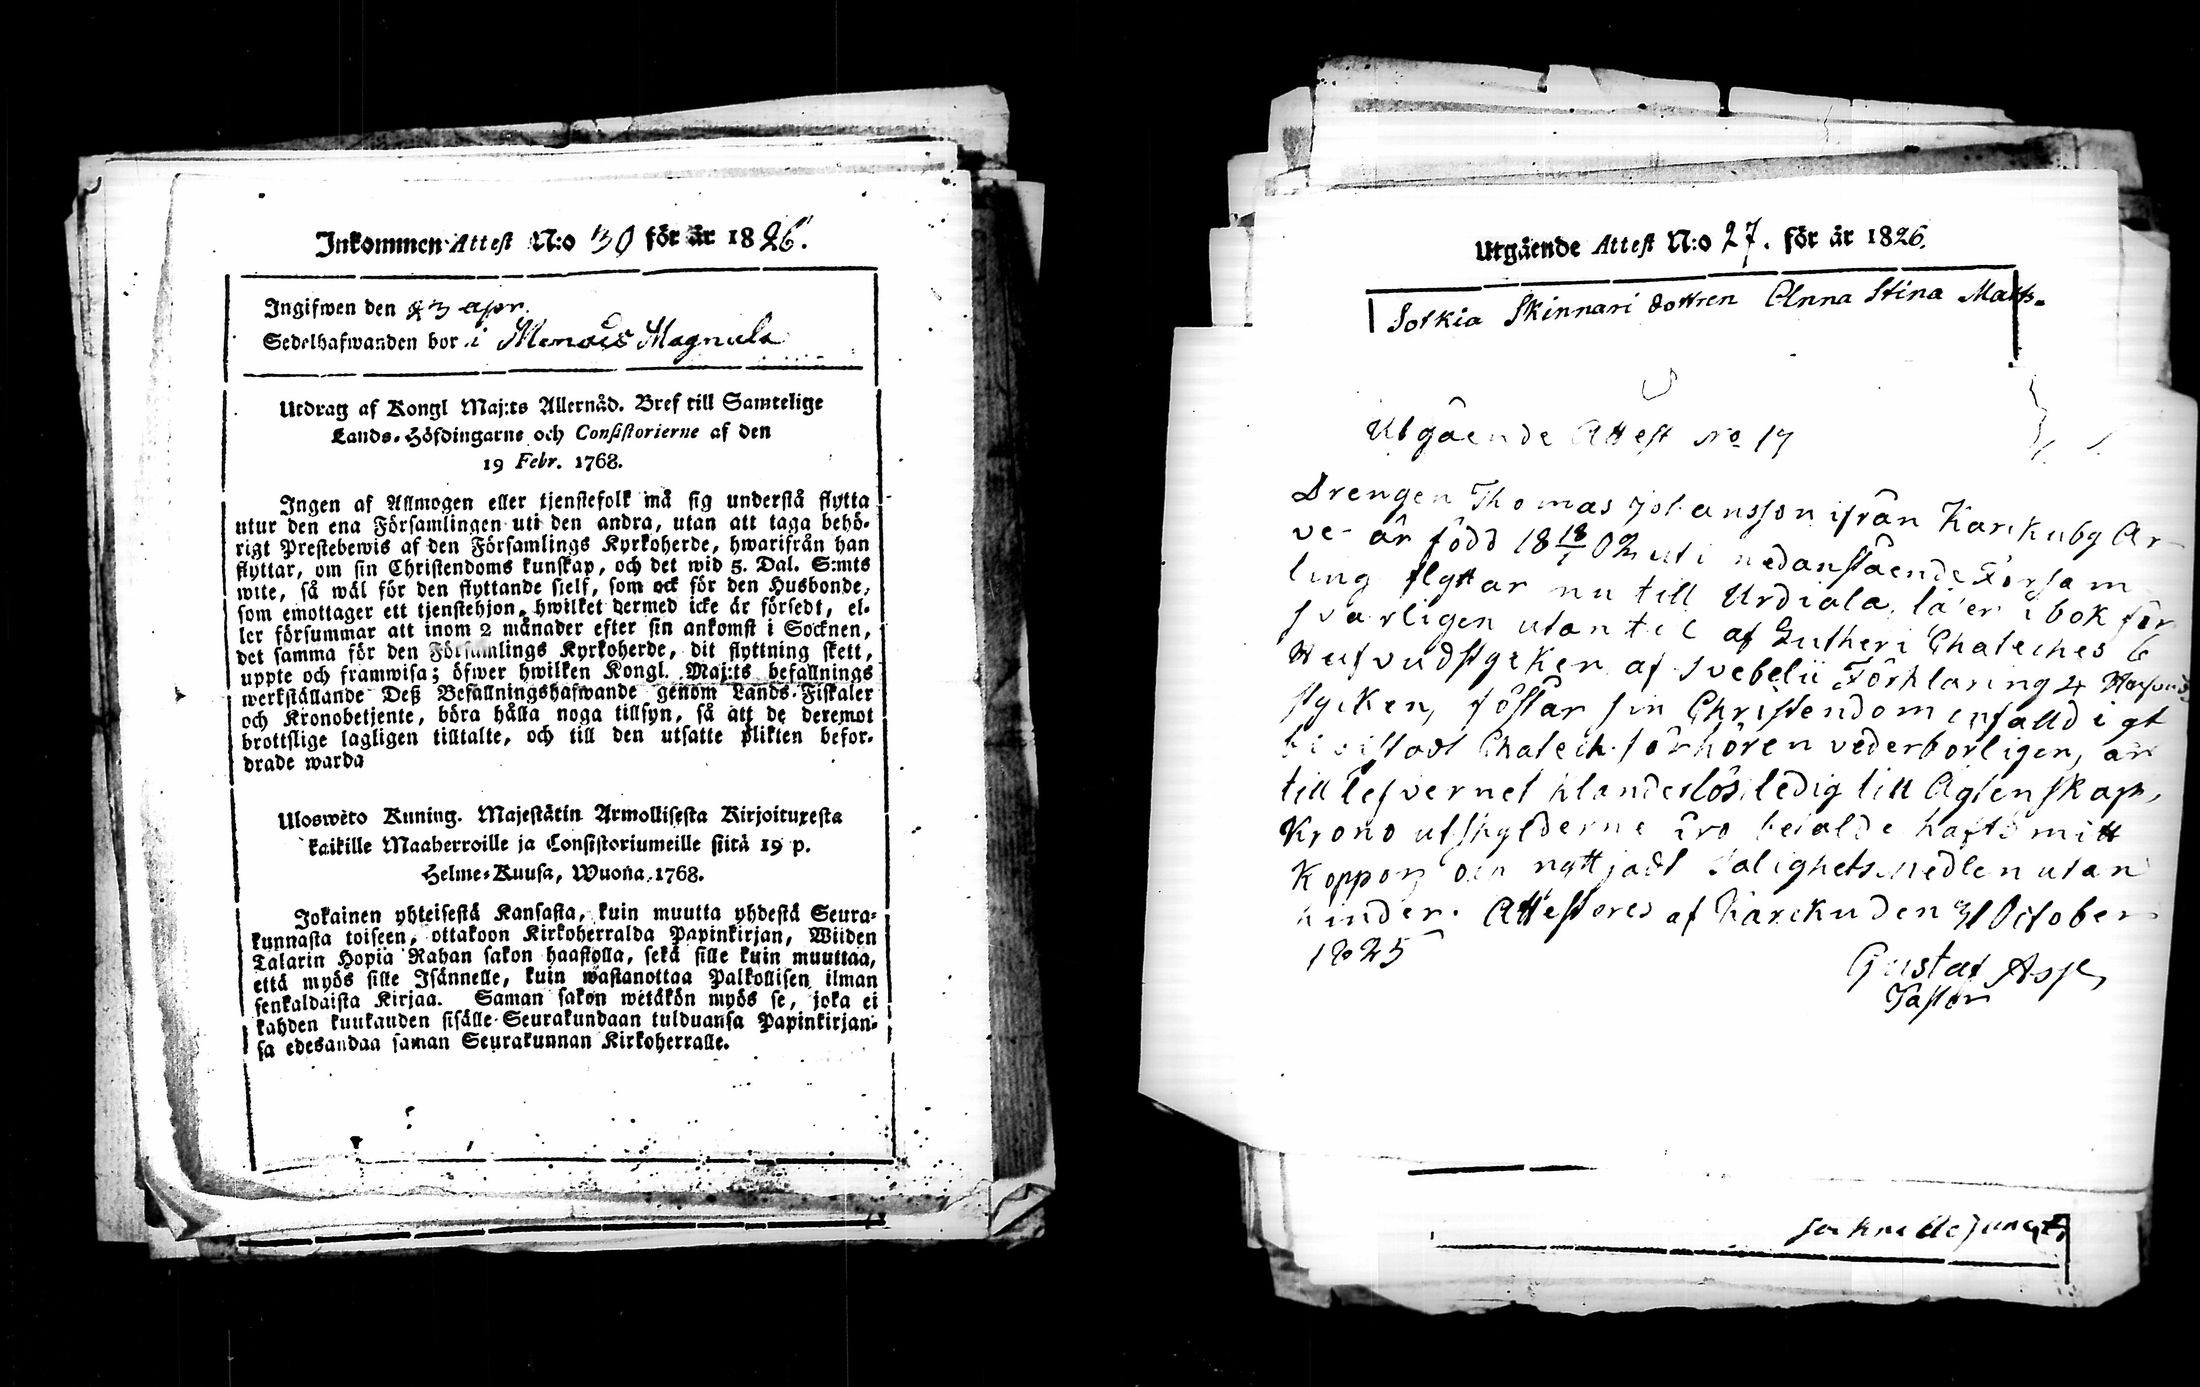 Inkommen Attest N:o 30 för år 1826.
Ingifwen den 23 apr.
Sedelhafwanden bor i Menois Magnula
Utdrag af Kongl Maj:ts Allernåd. Bref till Samtelige
Lands-Höfdingarne och Consistorierne af den
19 Febr. 1768.
Ingen af Allmogen eller tjenstefolk må sig understå flytta
utur den ena Församlingen uti den andra, utan att taga behö-
rigt Prestebewis af den Församlings Kyrkoherde, hwarifrån han
flyttar, om sin Christendoms kunskap, och det wid 5. Dal. S:mts
wite, så wäl för den flyttande sielf, som ock för den Husbonde,
som emottager ett tjenstehjon, hwilket dermed icke är försedt, el-
ler försummar att inom 2 månader efter sin ankomst i Socknen,
det samma för den Församlings Kyrkoherde, dit flyttning skett,
uppte och framwisa; öfwer hwilken Kongl. Maj:ts befallnings
werkställande Deß Befallningshafwande genom Lands-Fiskaler
och Kronobetjente, böra hålla noga tillsyn, så att de deremot
brottslige lagligen tilltalte, och till den utsatte plikten befor-
drade warda
Uloswèto Kuning. Majestätin Armollisesta Kirjoituxesta
kaikille Maaherroille ja Consistoriumeille siitä 19 p.
Helme-Kuusa, Wuoña 1768.
Jokainen yhteisestä Kansasta, kuin muutta yhdestä Seura-
kunnasta toiseen, ottakoon Kirkoherralda Papinkirjan, Wiiden
Talarin Hopia Rahan sakon haastolla, sekä sille kuin muuttaa,
että myös sille Isännelle, kuin wastanottaa Palkollisen ilman
senkaldaista Kirjaa. Saman sakon wetäkön myös se, joka ei
kahden kuukauden sisälle Seurakundaan tulduansa Papinkirjan-
sa edesandaa saman Seurakunnan Kirkoherralle.
Utgående Attest N:o 27. för år 1826.
Sotkia Skinnari dottren Anna Stina Matts-
Utgående Attest No 17
Drengen Thomas Johansson ifrån Karkuby Ar-
ve- år född 18 18/1 02 uti nedanstående Församling
ling flyttar nu till Urdiala, läser i bok för
svarligen utantil af Lutheri Chateches 6
Hufvudstycken af Svebelii Förklaring 4 Hufvud
stycken,föstår sin Christendom enfalldigt
bivistadt Chatech. förhören vederborligen, är
till lefvernet klanderlös, ledig till Agtenskap,
Krono utskylderne äro betalde haft smitt
Koppor och nyttjadt Salighets Medlen utan
hinder. Attesteres af Karcku den 31 October
1825
Gustaf
Pastor